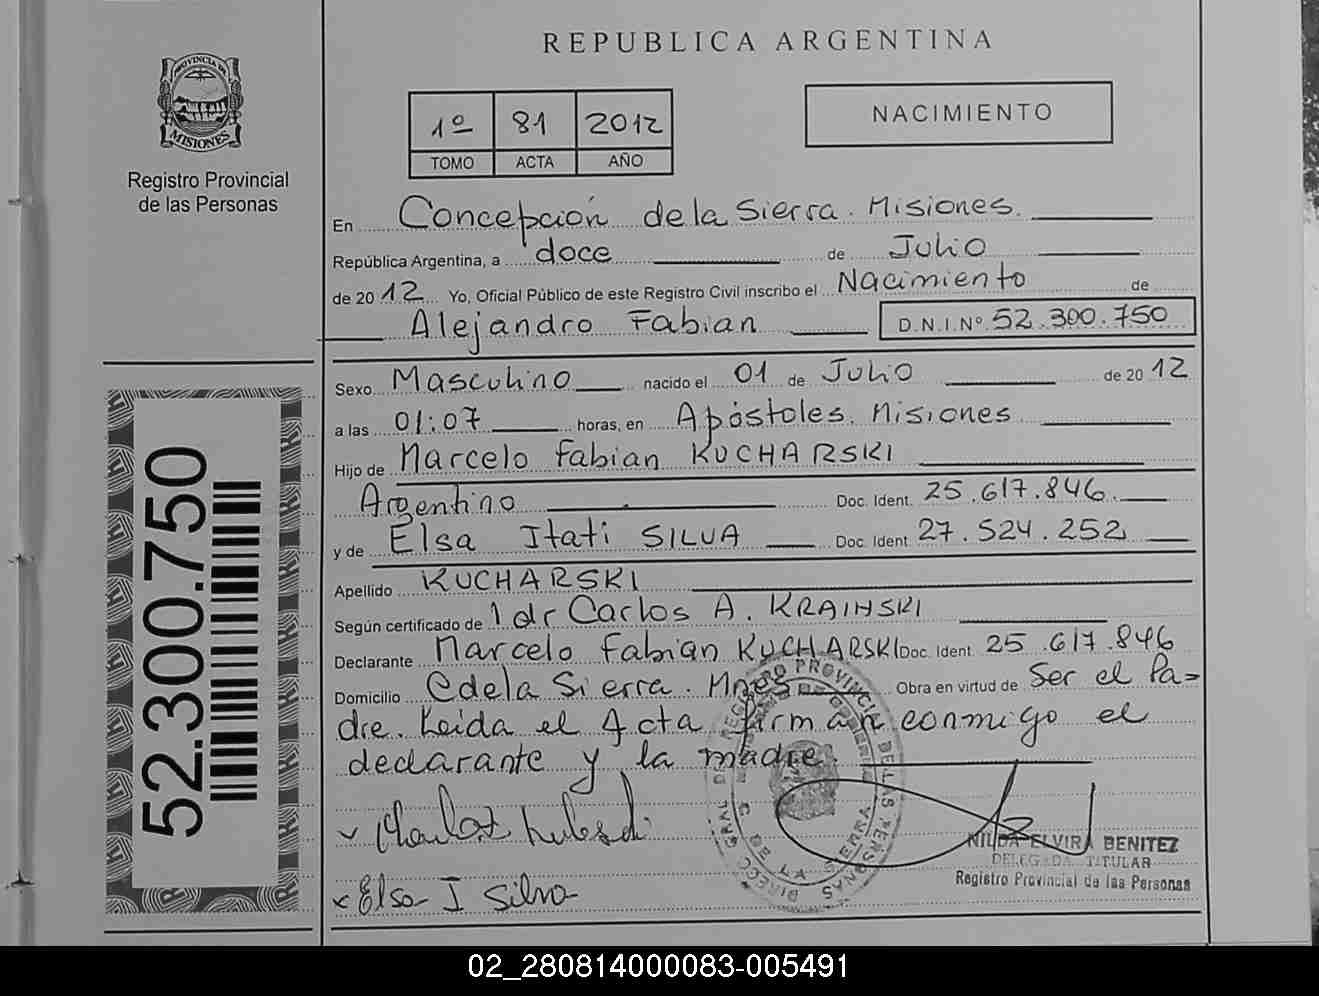 REPUBLICA ARGENTINA
PROVINCIA DE
MISIONES
Registro Provincial
de las Personas
1º 81 2012
TOMO ACTA AÑO
NACIMIENTO
En Concepción de la Sierra. Misiones.
República Argentina, a doce de Julio
de 2012 Yo, Oficial Público de este Registro Civil inscribo el Nacimiento de
Alejandro Fabian D.N.I.Nº 52.300.750
Sexo Masculino nacido el 01 de Julio de 2012
a las 01:07 horas, en Apóstoles. Misiones
Hijo de Marcelo Fabian KUCHARSKI
Argentino Doc. Ident. 25.617.846.
y de Elsa Itati SILVA Doc. Ident. 27.524.252
Apellido KUCHARSKI
Según certificado de 1 dr Carlos A. KRAINSKI
Declarante Marcelo Fabian KUCHARSKI Doc. Ident. 25.617.846
Domicilio C de la Sierra. Mnes Obra en virtud de Ser el Pa=
dre. Leida el Acta firman conmigo el
declarante y la madre.
Elsa I Silva
NILDA ELVIRA BENITEZ
DELEGADA TITULAR
Registro Provincial de las Personas
52.300.750
02_280814000083-005491